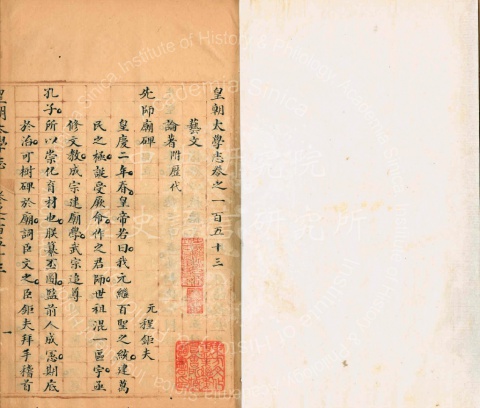 皇朝太學志卷之一百五十三
藝文
論著 附歷代
先師廟碑 元程鉅夫
皇慶二年春皇帝若曰我元繼百聖之統建萬
民之極誕受厥命作之君師世祖混一區宇亟
修文教成宗建廟學武宗追尊
孔子所以崇化育材也朕纂丕圖監前人成憲期底
於治可樹碑於廟詞臣文之臣鉅夫拜手稽首
皇朝太學志 卷之一百五十三 一